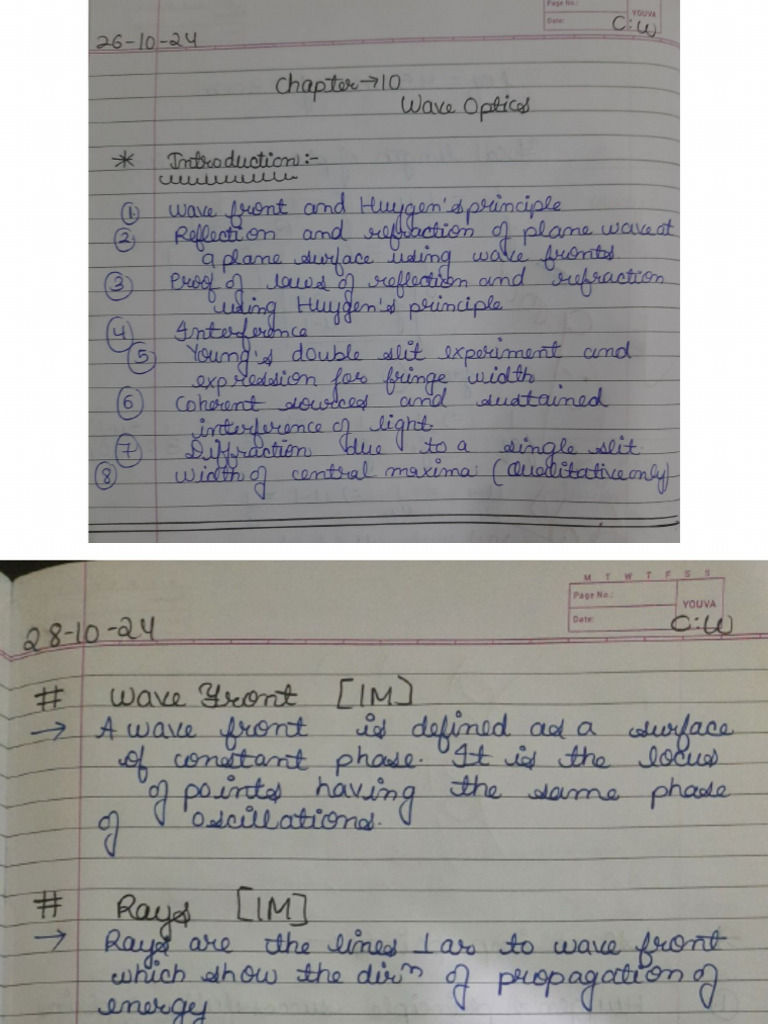 Page No.:
Date:
YOUVA
C:W
26-10-24
Chapter→10
Wave Optics
* Introduction:-
① Wave front and Huygen's principle
② Reflection and refraction of plane wave at
a plane surface using wave fronts
③ Proof of laws of reflection and refraction
using Huygen's principle
④ Interference
⑤ Young's double slit experiment and
expression for fringe width
⑥ Coherent sources and sustained
interference of light
⑦ Diffraction due to a single slit
⑧ width of central maxima (Qualitative only)
M T W T F S S
Page No.:
Date:
YOUVA
C:W
28-10-24
# Wave Front [1M]
→ A wave front is defined as a surface
of constant phase. It is the locus
of points having the same phase
of oscillations.
# Rays [1M]
→ Rays are the lines ⊥ar to wave front
which show the dirⁿ of propagation of
energy